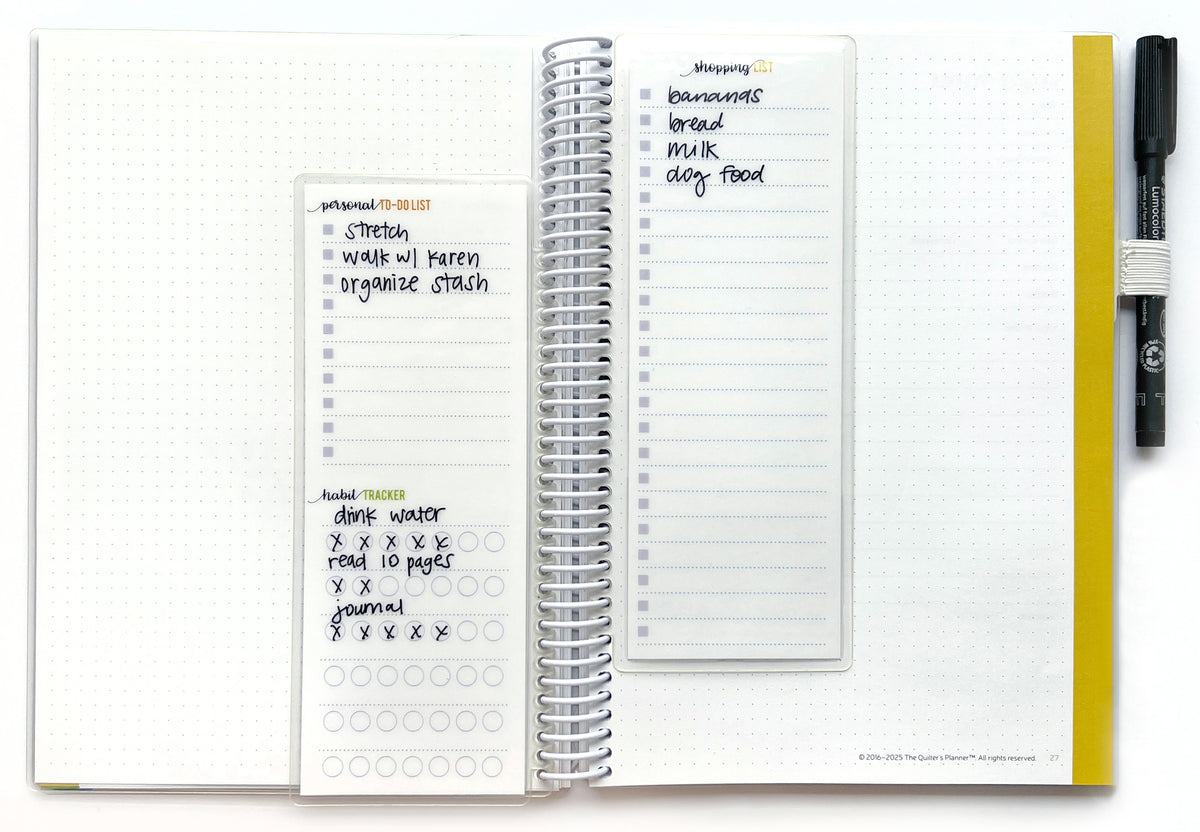 personal TO-DO LIST
stretch
walk w/ Karen
organize stash
habit TRACKER
drink water
X X X X X
read 10 pages
X X
journal
X X X X X
shopping LIST
bananas
bread
milk
dog food
© 2016–2025 The Quilter's Planner™. All rights reserved. 27
Lumocolor